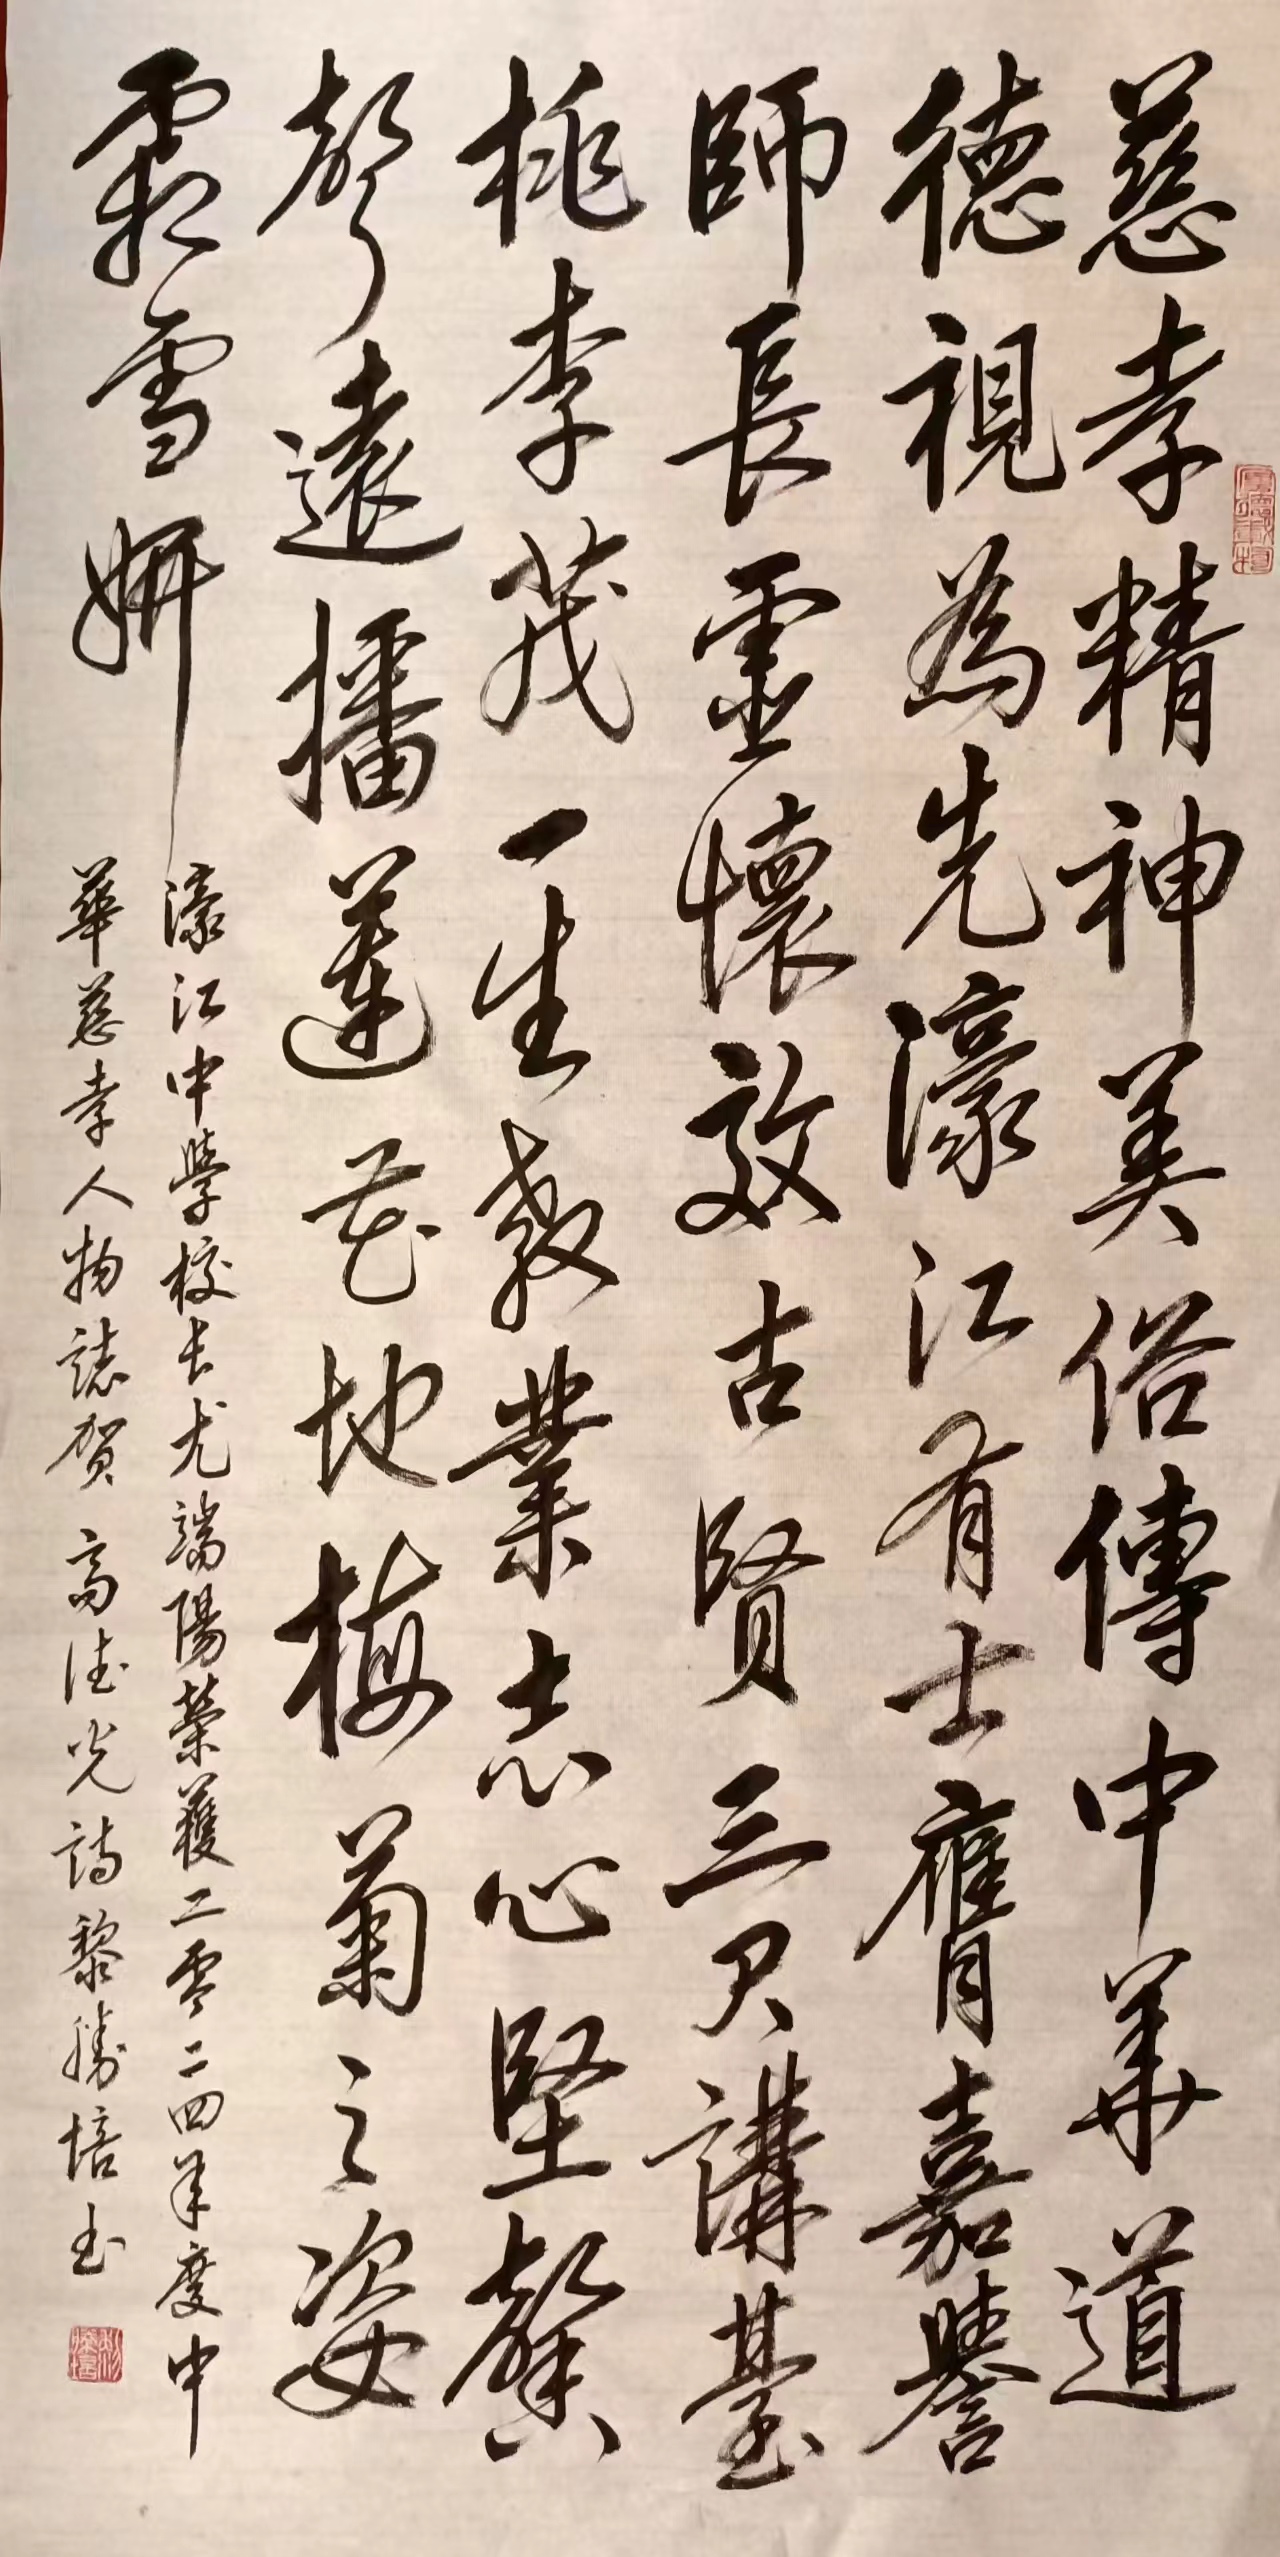 慈孝精神美俗傳中華道
德視為先濠江有士膺嘉譽
師長靈懷效古賢三尺講臺
桃李茂一生教業志心堅馨
聲遠播蓮花地梅菊之姿
霜雪妍
濠江中學校长尤端陽榮獲二零二四年度中
華慈孝人物誌贺 高德光詩黎勝培书
厚德載物